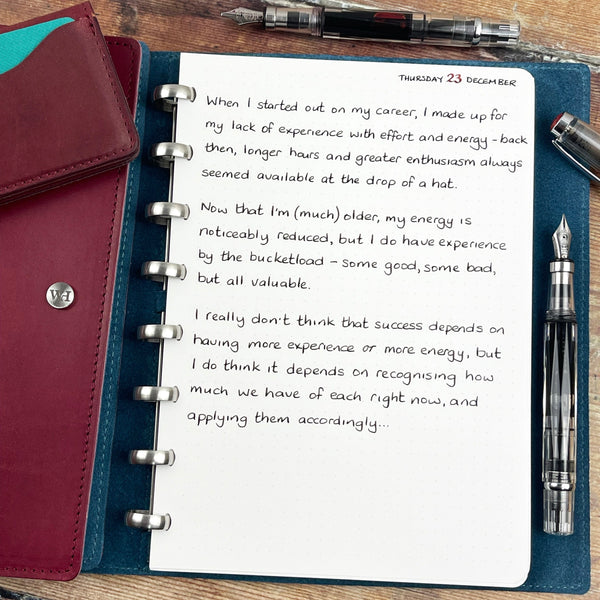 THURSDAY 23 DECEMBER
When I started out on my career, I made up for
my lack of experience with effort and energy - back
then, longer hours and greater enthusiasm always
seemed available at the drop of a hat.
Now that I'm (much) older, my energy is
noticeably reduced, but I do have experience
by the bucketload - some good, some bad,
but all valuable.
I really don't think that success depends on
having more experience or more energy, but
I do think it depends on recognising how
much we have of each right now, and
applying them accordingly...